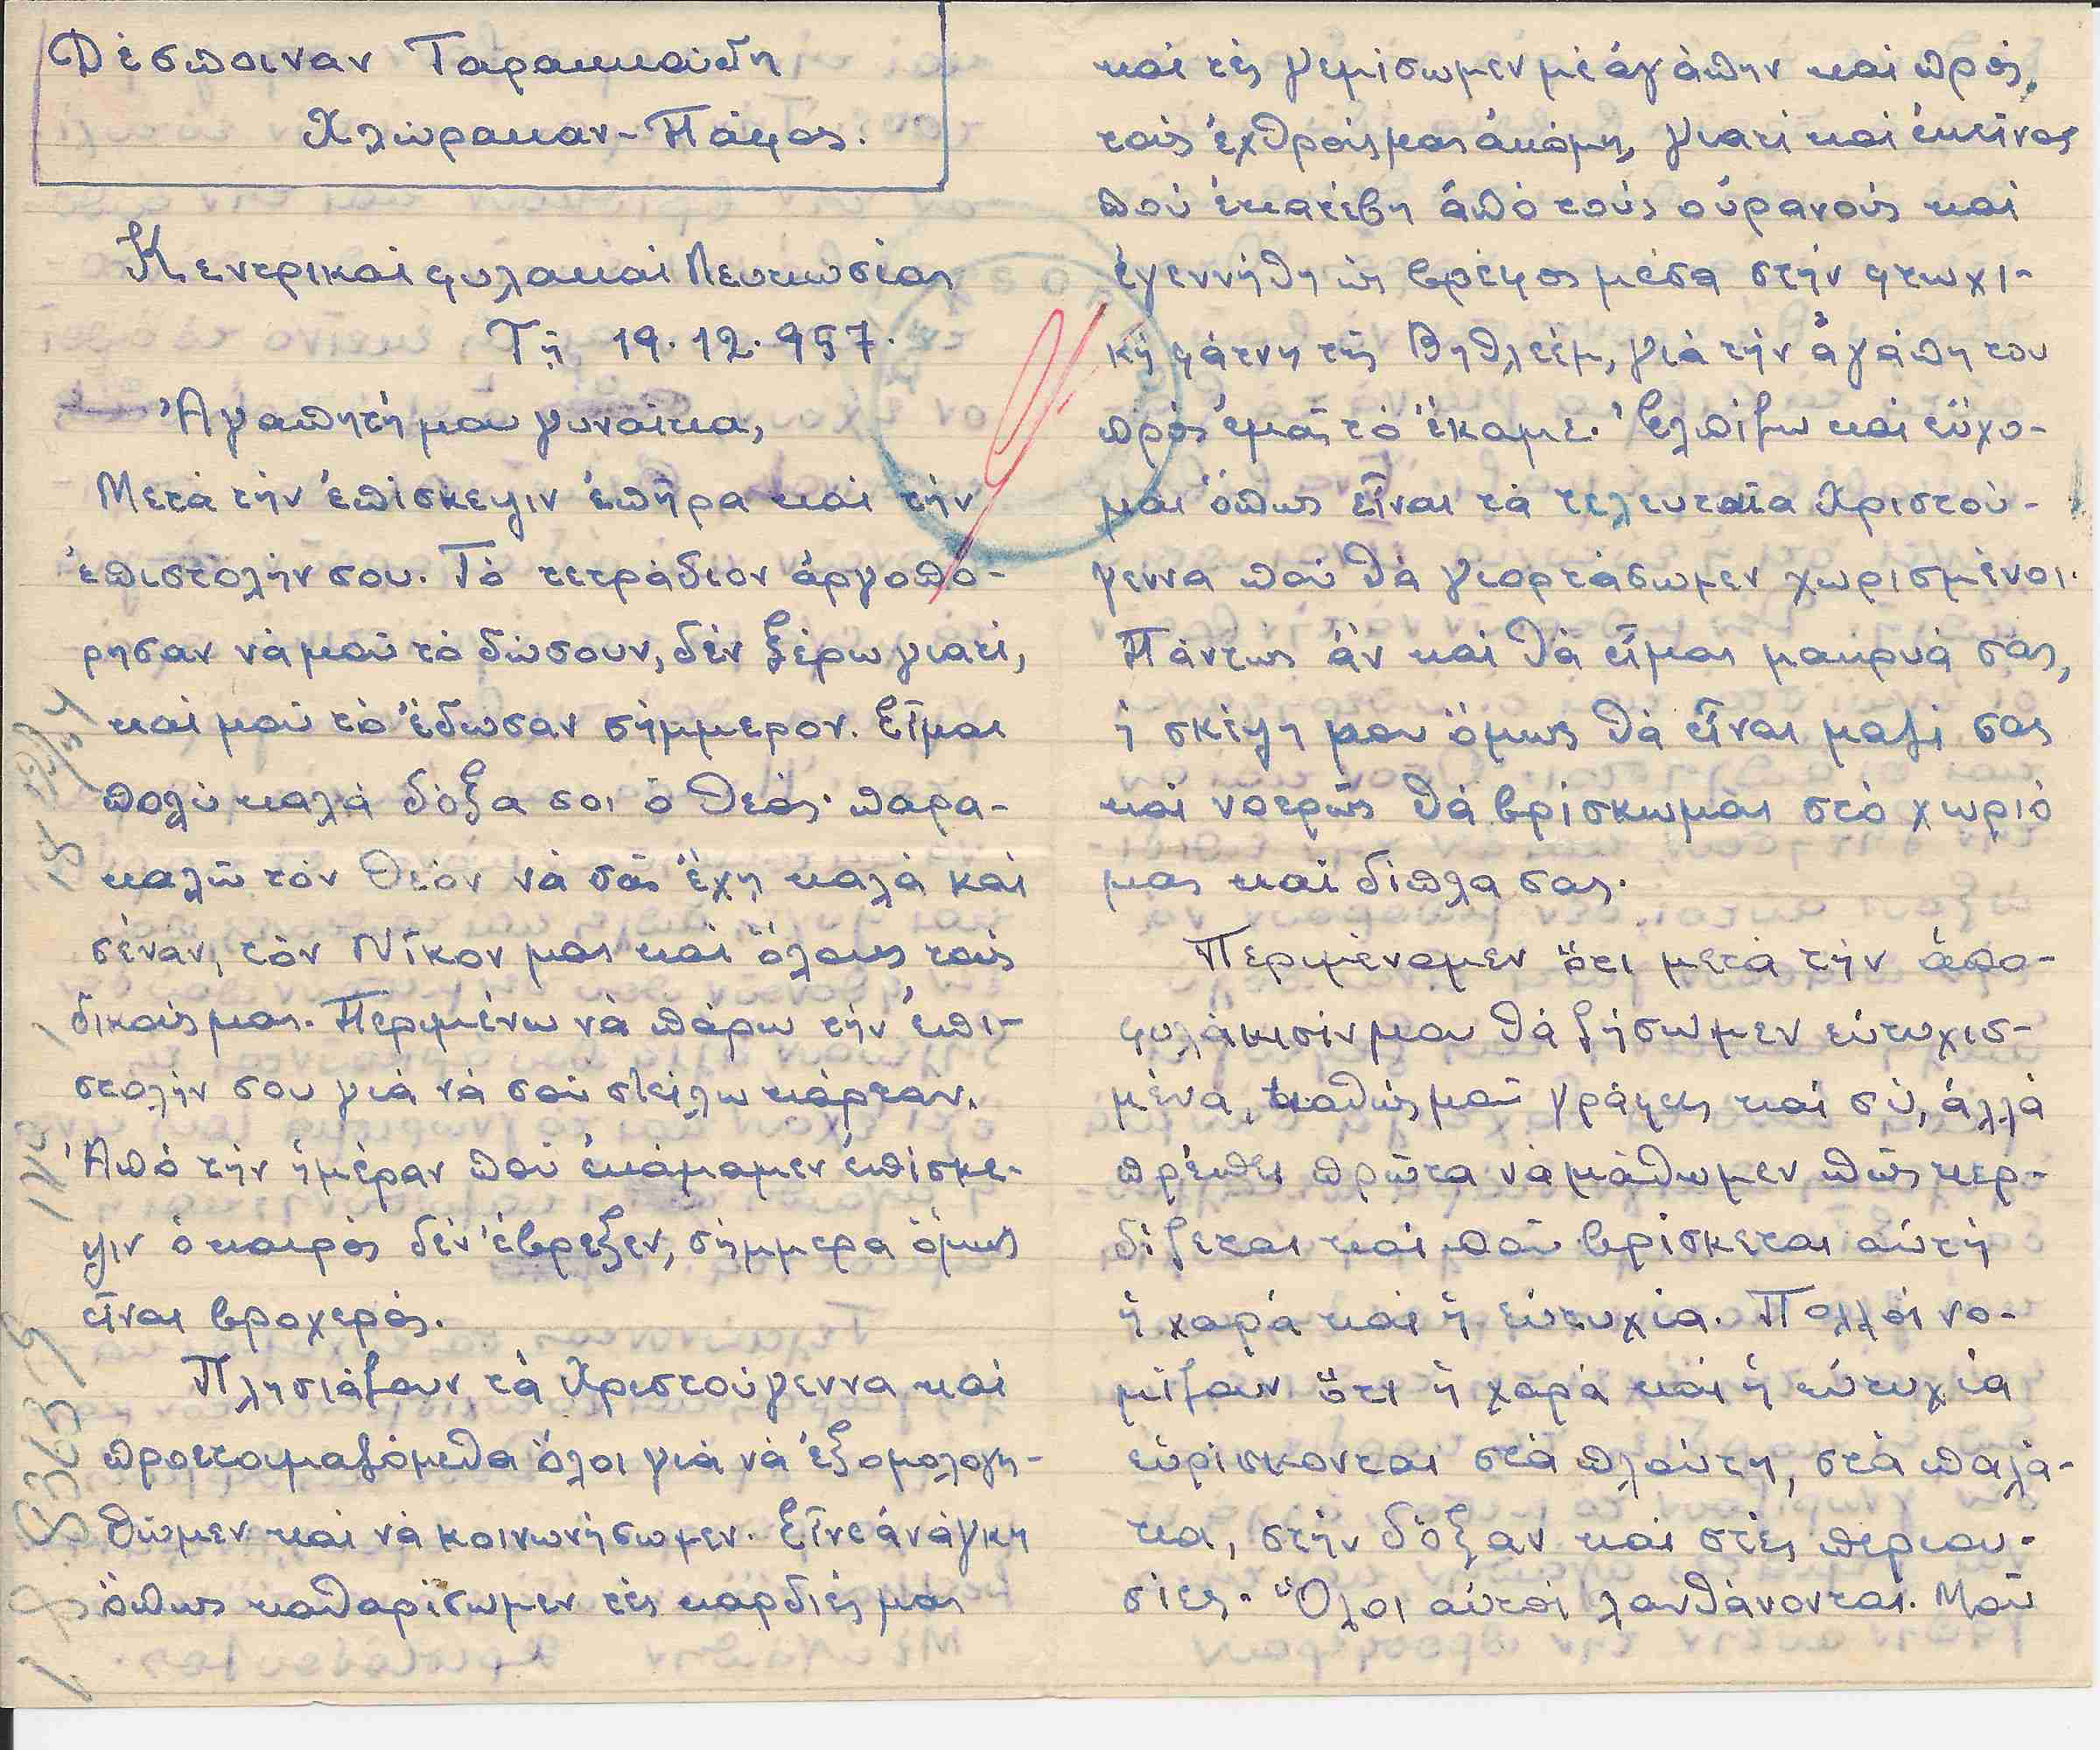 Δέσποιναν Ταρακκούδη
Χλώρακαν - Πάφος.
Κεντρικαί φυλακαί Λευκωσίας
Τῇ 19.12.957.
Ἀγαπητή μου γυναίκα,
Μετά τήν ἐπίσκεψιν ἐπῆρα καί τήν
ἐπιστολήν σου. Τό τετράδιον ἀργοπό-
ρησαν νά μοῦ τό δώσουν, δέν ξέρω γιατί,
καί μοῦ τό ἔδωσαν σήμμερον. Εἶμαι
πολύ καλά δόξα σοι ὁ Θεός· παρα-
καλῶ τόν Θεόν νά σᾶς ἔχη καλά καί
σέναν, τόν Νῖκον μας καί ὅλους τούς
δικούς μας. Περιμένω νά πάρω τήν ἐπι-
στολήν σου γιά νά σοῦ στείλω κάρταν.
Ἀπό τήν ἡμέραν πού ἐκάμαμεν ἐπίσκε-
ψιν ὁ καιρός δέν ἔβρεξεν, σήμμερα ὅμως
εἶναι βροχερός.
Πλησιάζουν τά Χριστούγεννα καί
προετοιμαζόμεθα ὅλοι γιά νά ἐξομολογη-
θῶμεν καί νά κοινωνήσωμεν. Εἶνε ἀνάγκη
ὅπως καθαρίσωμεν τές καρδιές μας
καί τές γεμίσωμεν μέ ἀγάπην καί πρός
τούς ἐχθρούς μας ἀκόμη, γιατί καί ἐκεῖνος
πού ἐκατέβη ἀπό τούς οὐρανούς καί
ἐγεννήθη ὡς βρέφος μέσα στήν φτωχι-
κή φάτνη τῆς Βηθλεέμ, γιά τήν ἀγάπη του
πρός ἐμᾶς τό ἔκαμε. Ἐλπίζω καί εὔχο-
μαι ὅπως εἶναι τά τελευταῖα Χριστού-
γεννα πού θά γιορτάσωμεν χωρισμένοι.
Πάντως ἄν καί θά εἶμαι μακρυά σας,
ἡ σκέψη μου ὅμως θά εἶναι μαζί σας
καί νοερῶς θά βρίσκωμαι στό χωριό
μας καί δίπλα σας.
Περιμένομεν ὅτι μετά τήν ἀπο-
φυλάκισίν μου θά ζήσωμεν εὐτυχισ-
μένα, καθώς μοῦ γράφεις καί σύ, ἀλλά
πρέπει πρῶτα νά μάθωμεν πῶς κερ-
δίζεται καί ποῦ βρίσκεται αὐτή
ἡ χαρά καί ἡ εὐτυχία. Πολλοί νο-
μίζουν ὅτι ἡ χαρά καί ἡ εὐτυχία
εὑρίσκονται στά πλούτη, στά παλά-
τια, στήν δόξαν καί στές περιου-
σίες. Ὅλοι αὐτοί λανθάνονται. Μοῦ